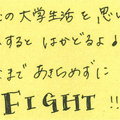 の大学生活を思い
すると はかどるよ♪
まで あきらめずに
FIGHT!!